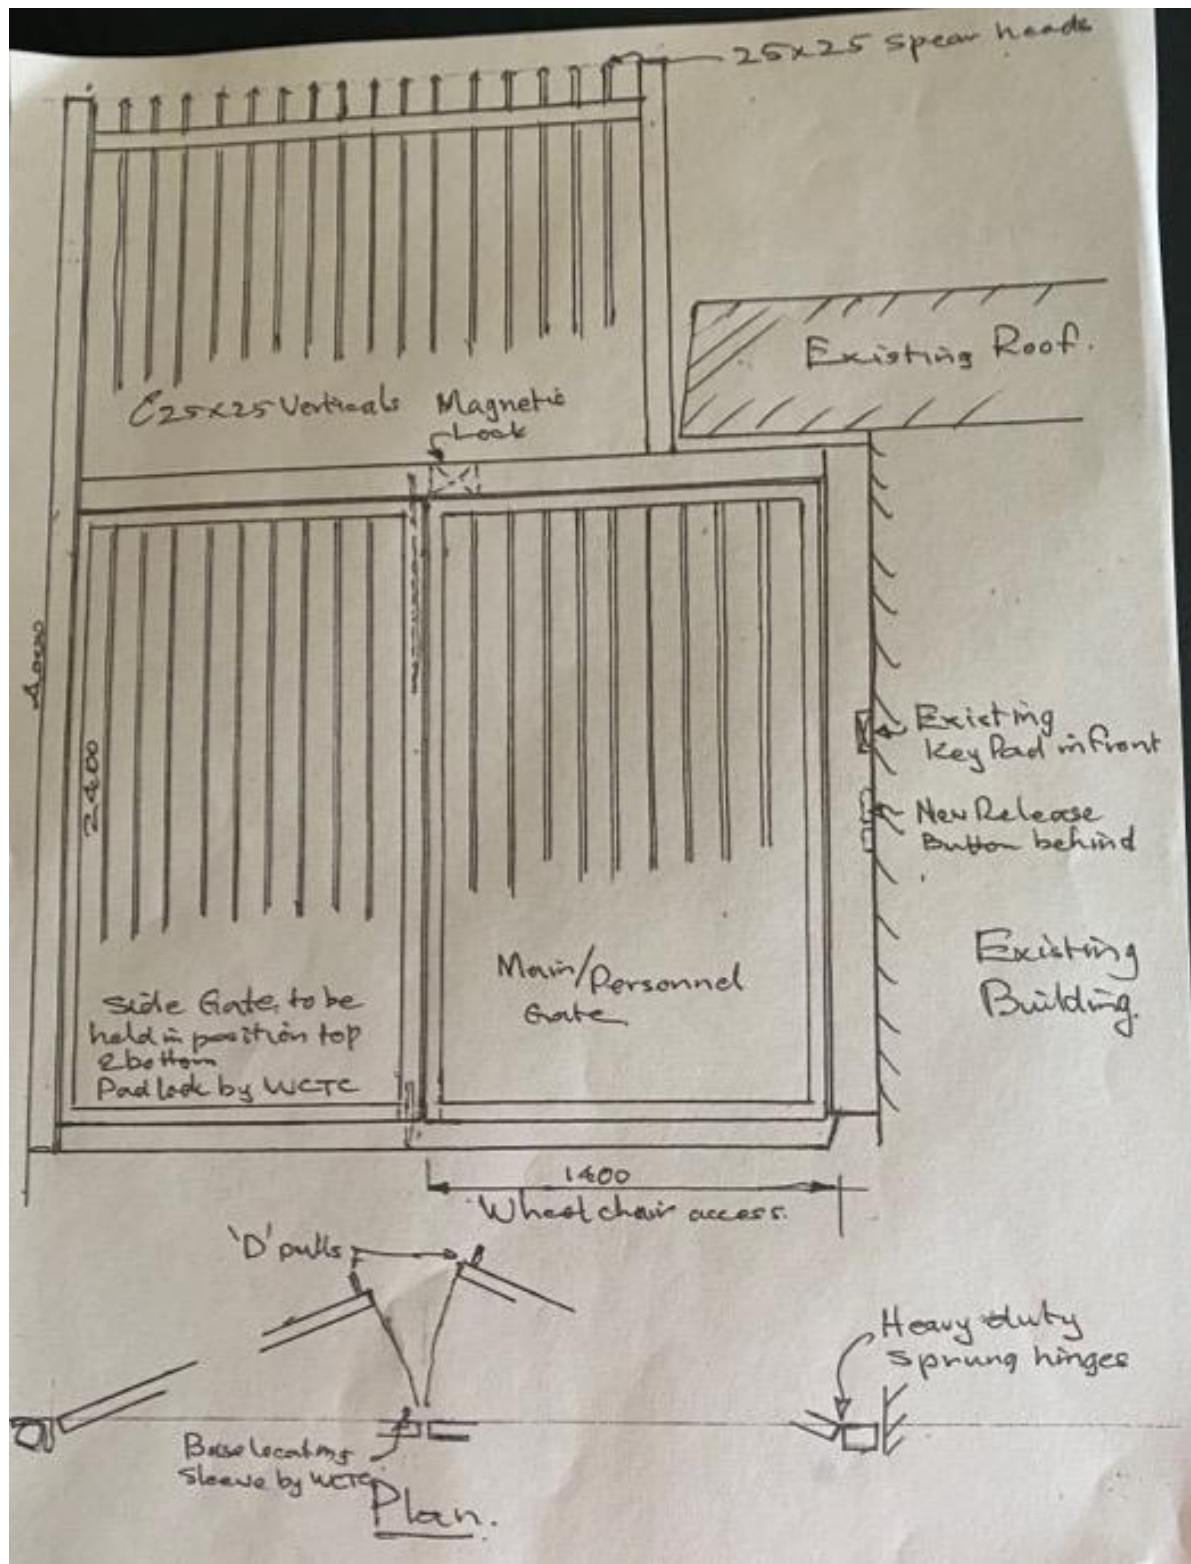 25x25 spear heads
Existing Roof.
25x25 Verticals
Magnetic
Lock
4000
2400
Existing
Key Pad in front
New Release
Button behind
Existing
Building.
Main/Personnel
Gate
Side Gate, to be
held in position top
& bottom
Padlock by WCTC
1400
Wheel chair access.
'D' pulls
Heavy duty
sprung hinges
Base locating
sleeve by WCTC
Plan.